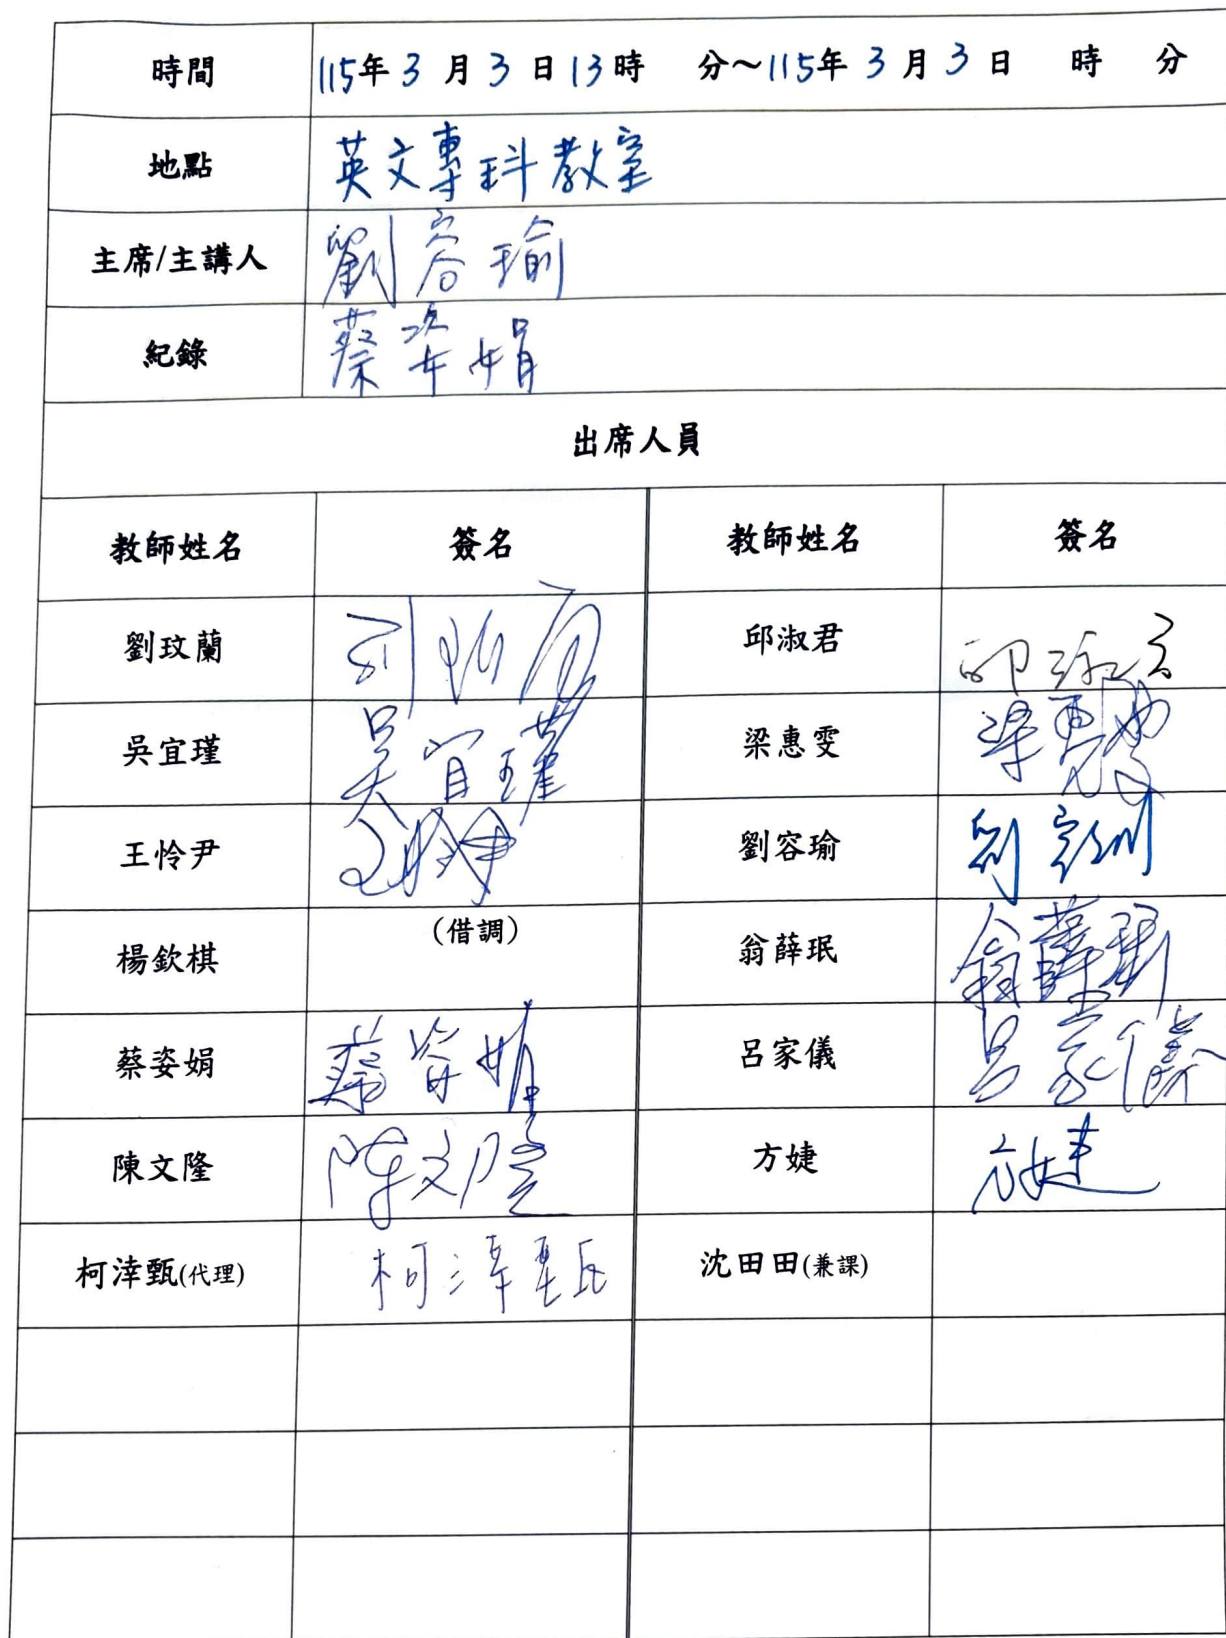 時間 115年 3 月 3 日 13時 分～115年 3 月 3 日 時 分
地點 英文專科教室
主席/主講人 劉容瑜
紀錄 蔡姿娟
出席人員
教師姓名 簽名 教師姓名 簽名
劉玟蘭 邱淑君
吳宜瑾 吳宜瑾 梁惠雯
王怜尹 劉容瑜
楊欽棋 (借調) 翁薛珉 翁薛珉
蔡姿娟 蔡姿娟 呂家儀 呂家儀
陳文隆 陳文隆 方婕 方婕
柯涬甄(代理) 沈田田(兼課)